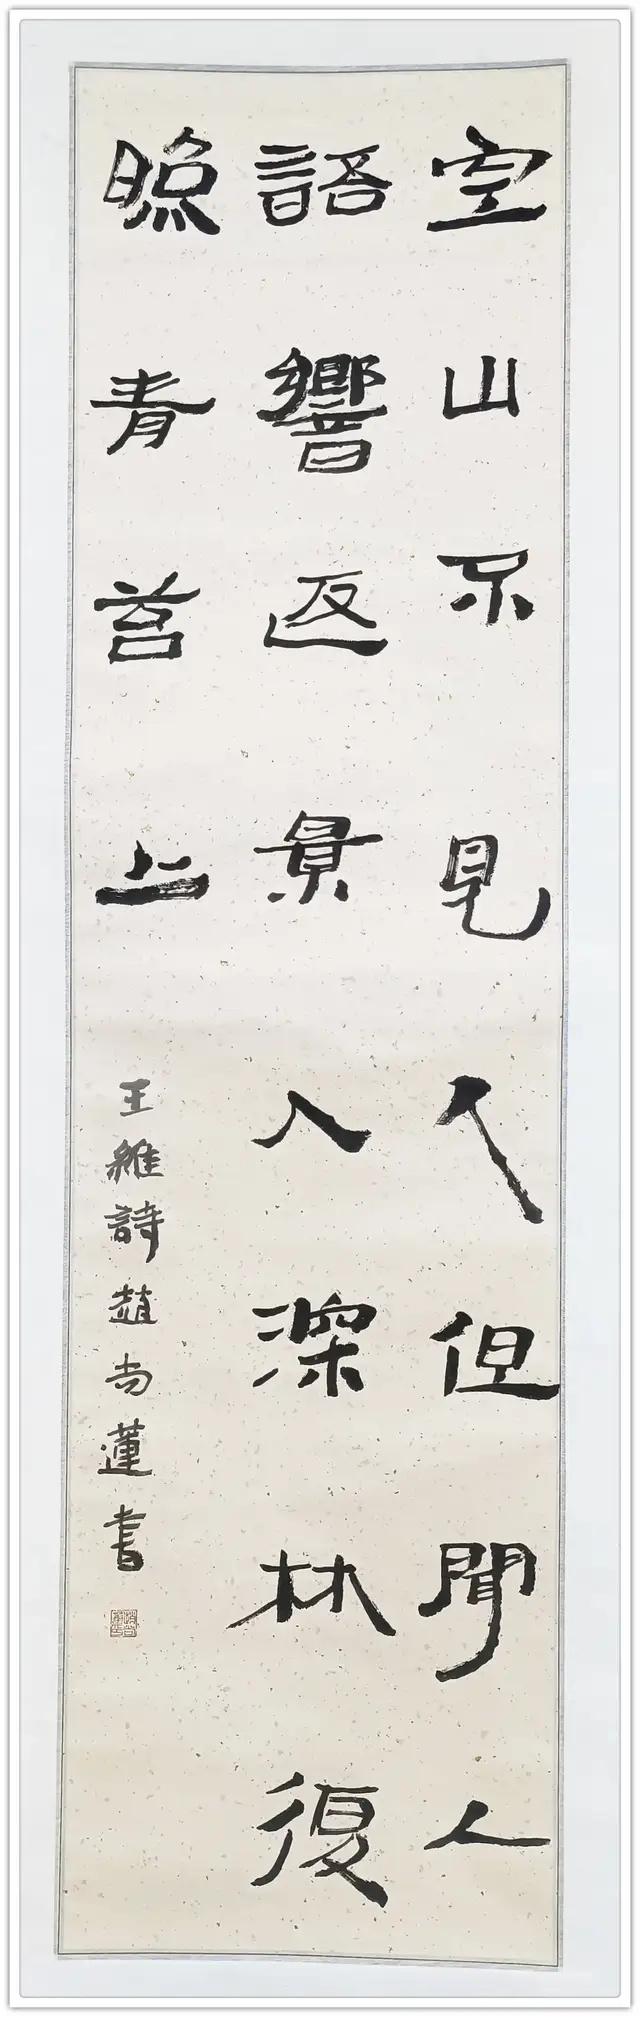 空山不見人但聞人
語響返景入深林復
照青苔上
王維詩趙尚蓮書